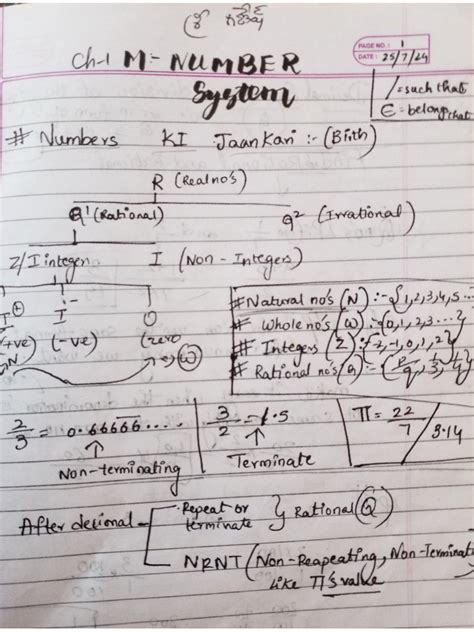 श्री गणेश
PAGE NO.: 1
DATE: 25/7/24
Ch-1 M:- NUMBER
System
/=such that
∈=belong that
# Numbers KI Jaankari :- (Birth)
R (Real no's)
Q¹ (Rational) Q² (Irrational)
Z/I integer I (Non-Integers)
I⊕ I⁻ O
(+ve) (-ve) (zero)
N W
# Natural no's (N) :- {1,2,3,4,5...
# Whole no's (W) :- {0,1,2,3...}
# Integers (Z) :- {-2,-1,0,1,2}
# Rational no's (Q) :- {P/q, 1/3, 1/4}
2/3 = 0.66666.... 3/2 = 1.5 π = 22/7 / 3.14
Non-terminating Terminate
After decimal - Repeat or terminate } Rational (Q)
NRNT (Non-Reapeating, Non-Terminat
Like π's value